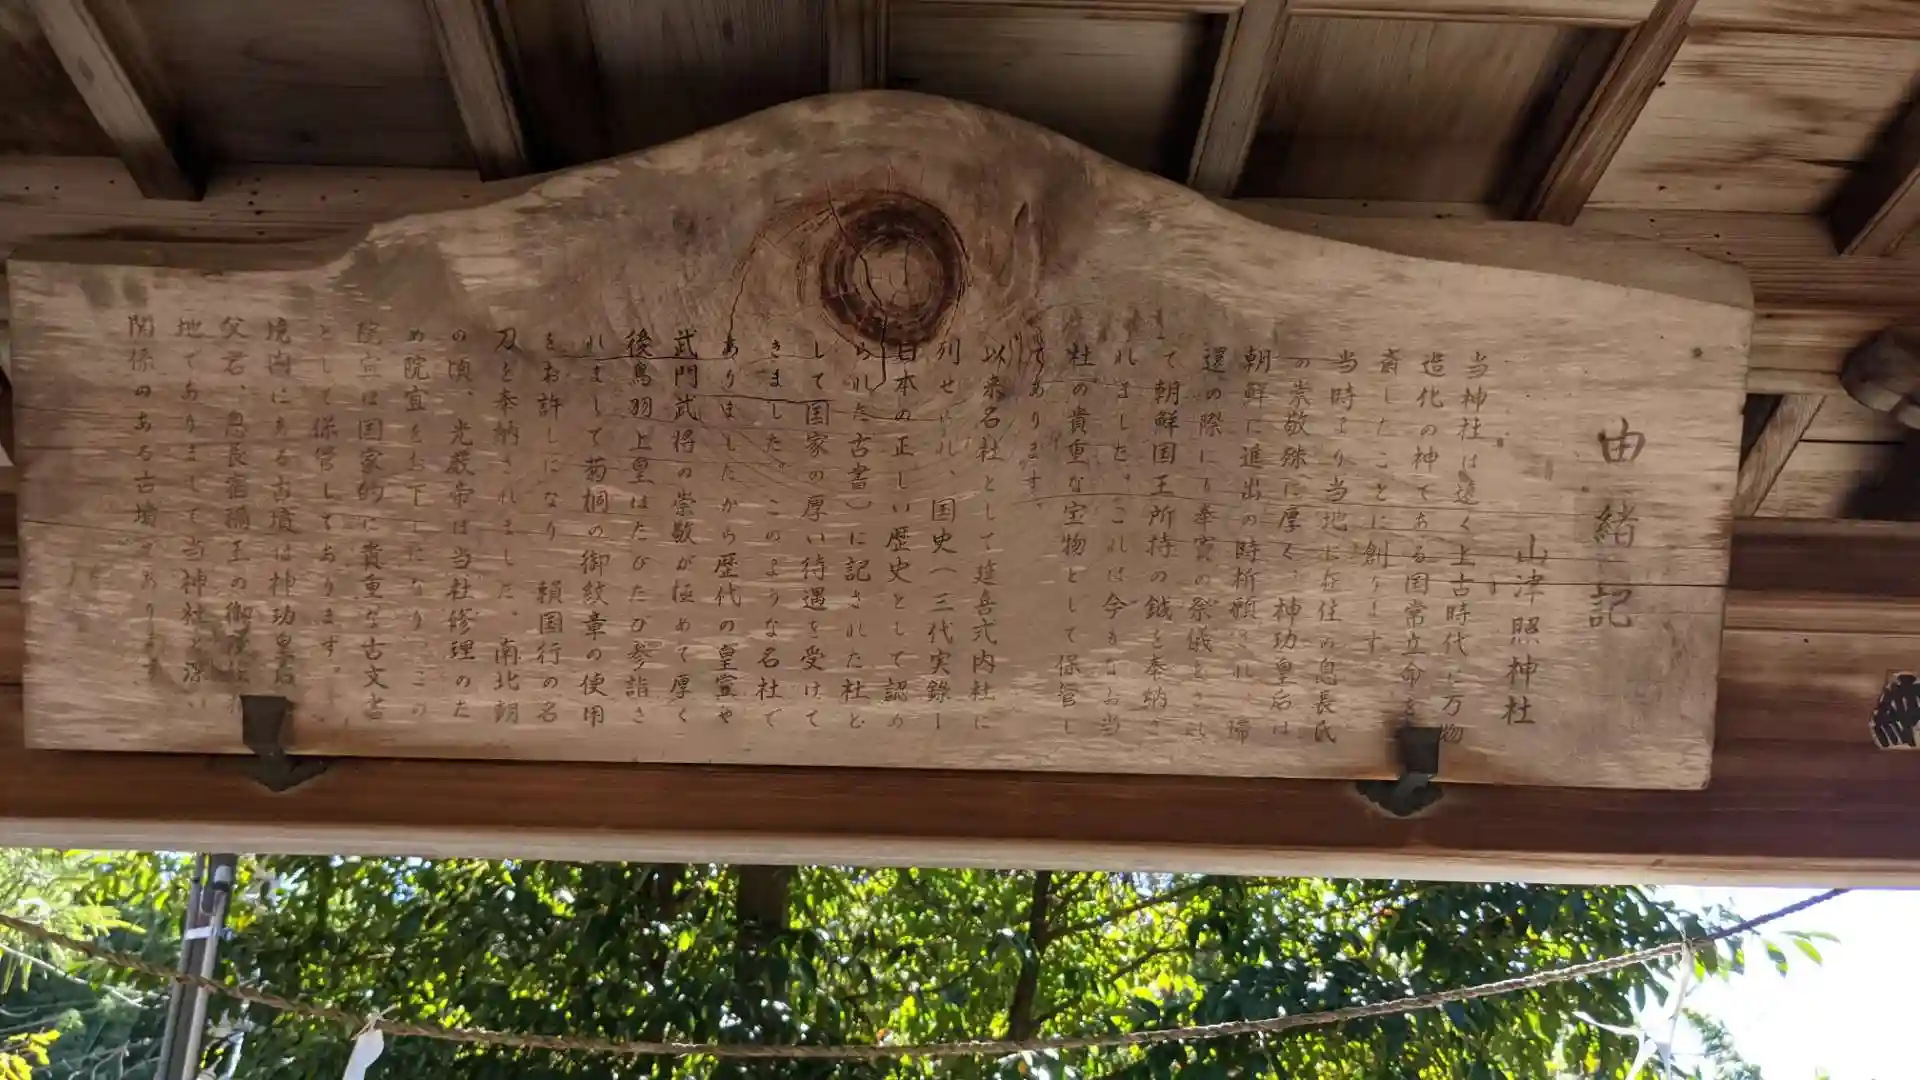 由緒記
山津照神社
当神社は遠く上古時代に万物
造化の神である国常立命を
斎したことに創ります
当時より当地に在住の息長氏
の崇敬殊に厚く、神功皇后は
朝鮮に進出の時祈願され、帰
還の際にも奉賽の祭儀をされ
て朝鮮国王所持の鉞を奉納さ
れました。これは今もなお当
社の貴重な宝物として保管し
てあります。
以来名社として延喜式内社に
列せられ、国史(三代実録ー
日本の正しい歴史として認め
られた古書)に記された社と
して国家の厚い待遇を受けて
きました。このような名社で
ありましたから歴代の皇室や
武門武将の崇敬が極めて厚く
後鳥羽上皇はたびたび参詣さ
れまして菊桐の御紋章の使用
をお許しになり 頼国行の名
刀を奉納されました。南北朝
の頃、光厳帝は当社修理のた
め院宣をお下しになり、この
院宣は国家的に貴重な古文書
として保管しております。
境内にある古墳は神功皇后
父君、息長宿禰王の御
地でありまして当神社と深い
関係のある古墳であります